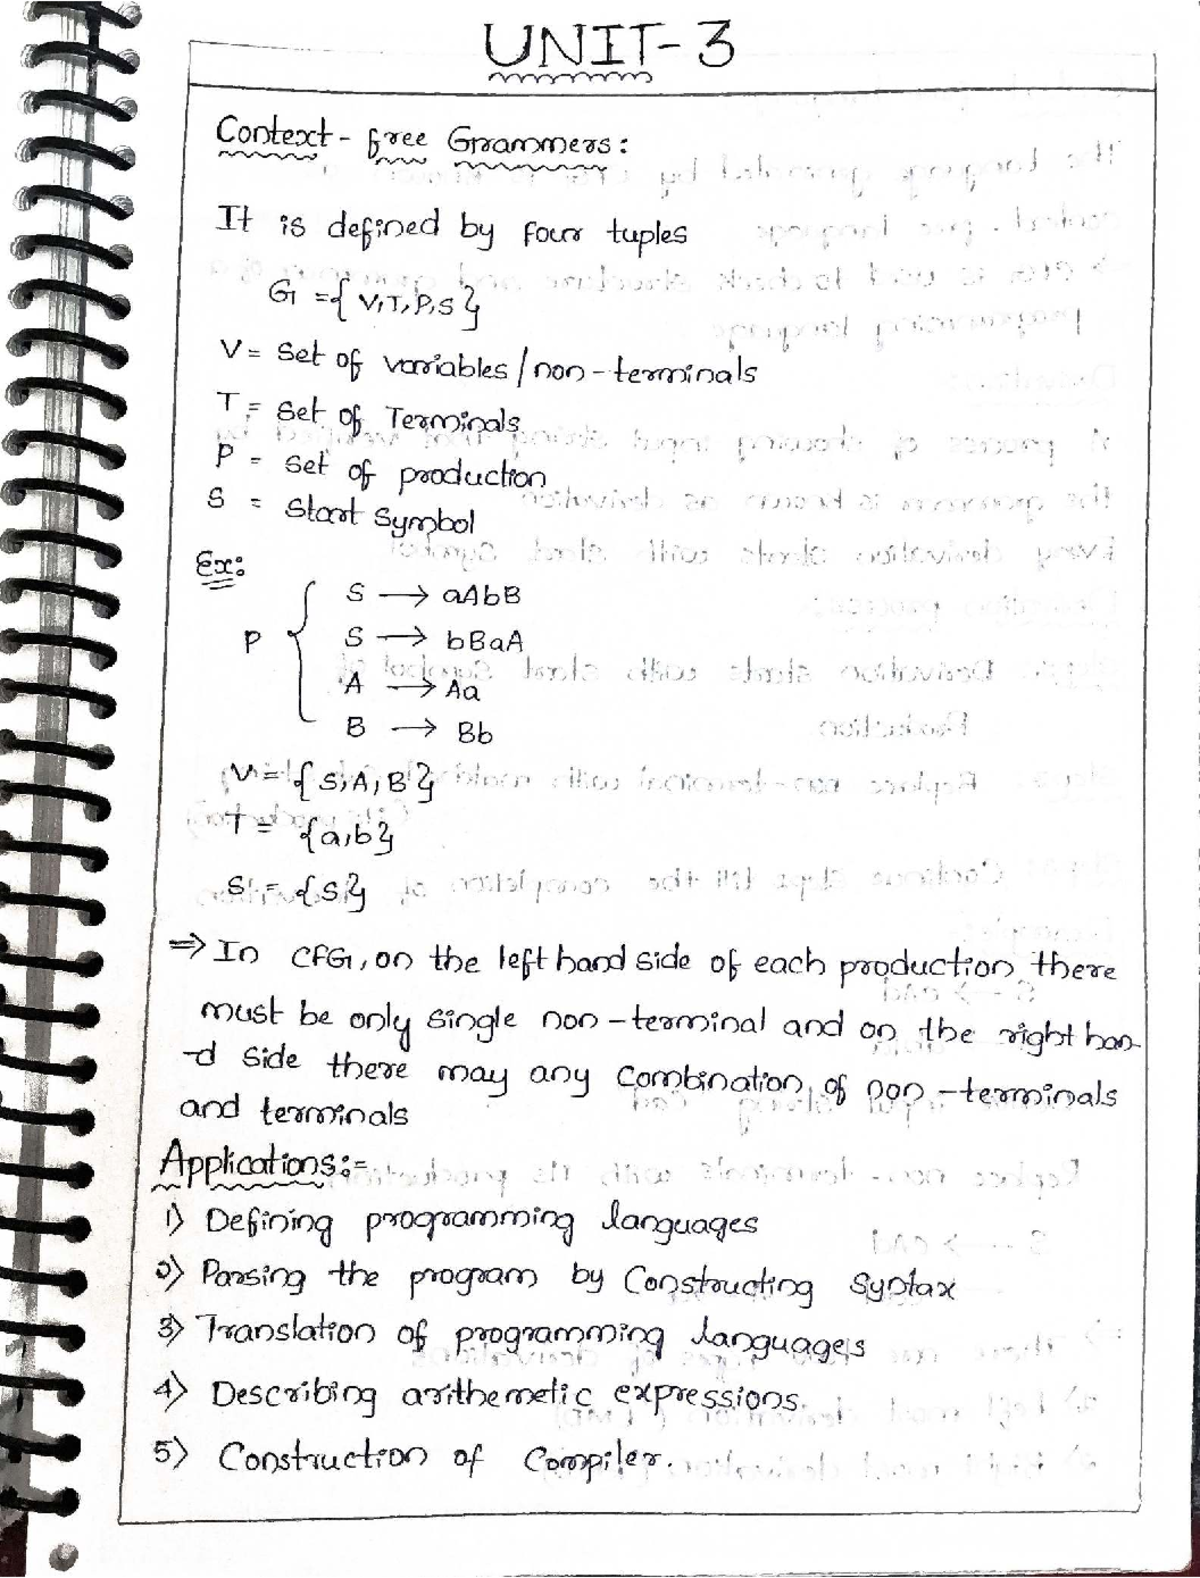 UNIT-3
Context-free Grammers:
It is defined by four tuples
G = { V,T,P,S }
V = Set of variables / non-terminals
T = Set of Terminals
P = Set of production
S = Start Symbol
Ex:
P { S → aAbB
S → bBaA
A → Aa
B → Bb
V = { S, A, B }
T = { a, b }
S = { S }
⇒ In CFG, on the left hand side of each production there
must be only single non-terminal and on the right han
-d side there may any combination of non-terminals
and terminals
Applications:-
1) Defining programming languages
2) Parsing the program by Constructing Syntax
3) Translation of programming languages
4) Describing arithemetic expressions.
5) Construction of Compiler.